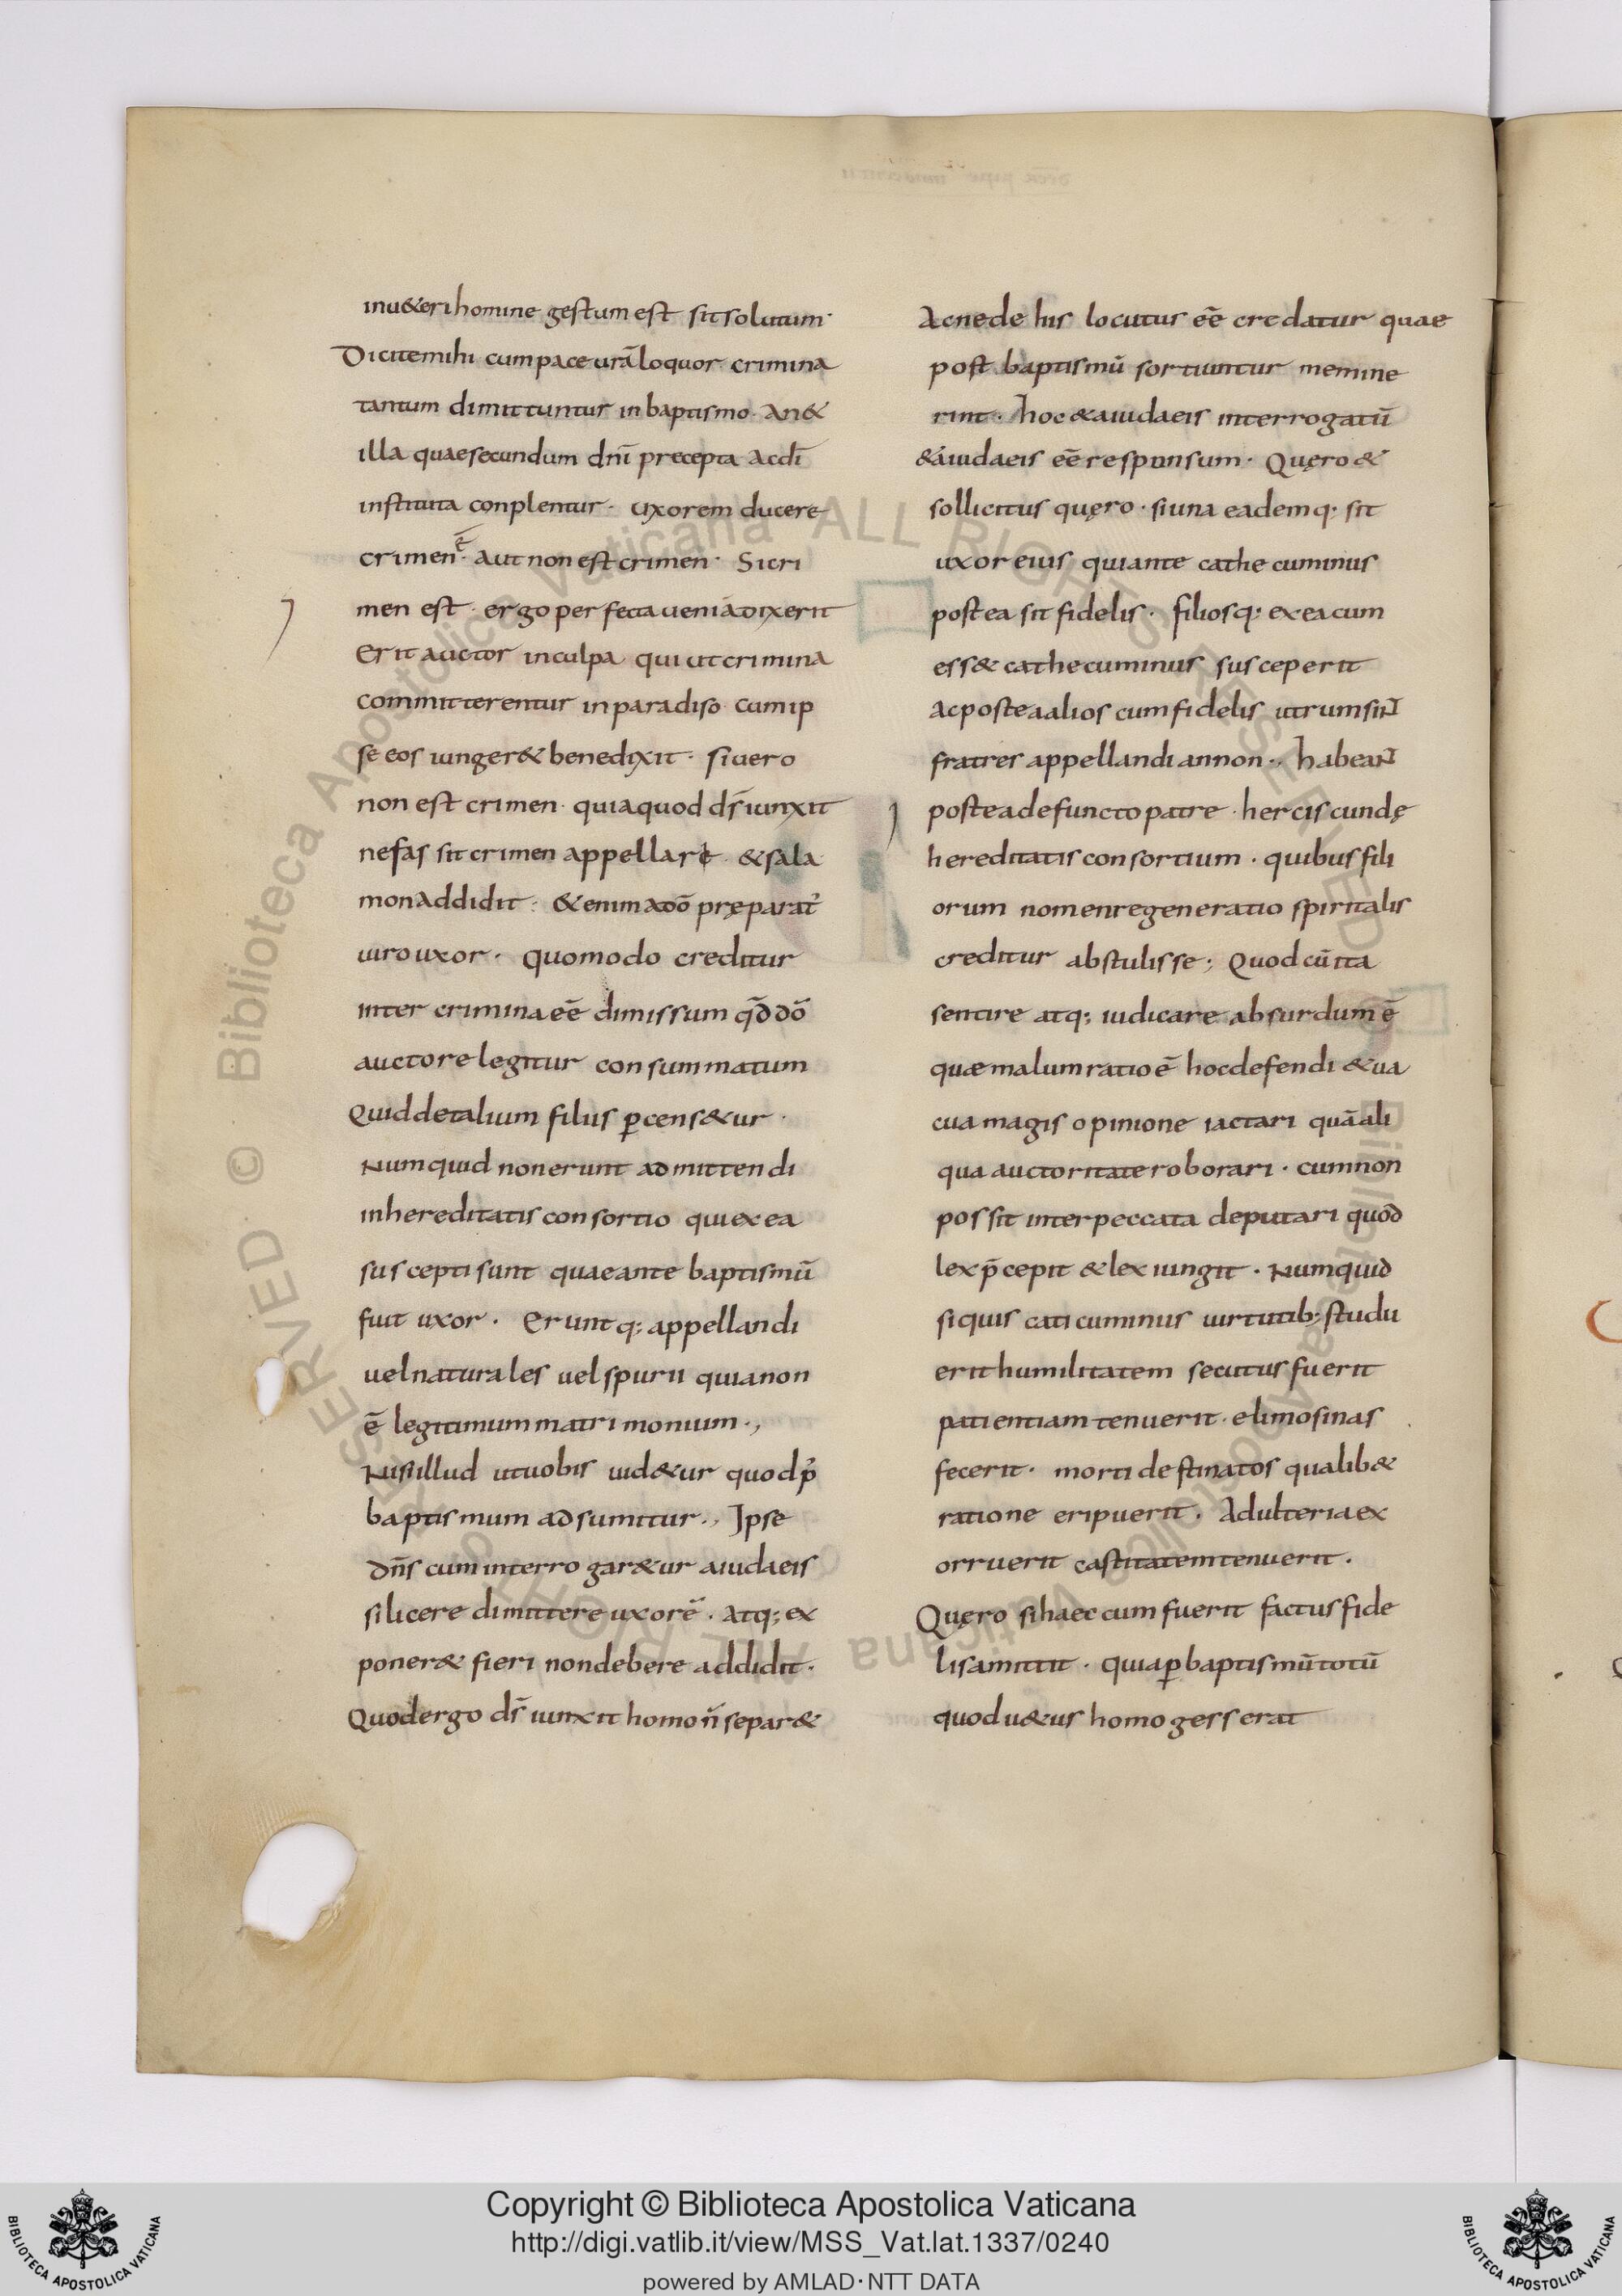 inu&eri homine gestum est sit solutum·
Dicite mihi cum pace urā loquor crimina
tantum dimittuntur in baptismo· An &
illa quae secundum dnī precepta ac dī
instituta conplentur· uxorem ducere
crimen ē· aut non est crimen· Si cri
men est· ergo per fecta ueniā dixerit
Erit auctor in culpa qui ut crimina
committerentur in paradiso cum ip
se eos iunger& benedixit· si uero
non est crimen· quia quod dſ iunxit
nefas sit crimen appellare· & sala
mon addidit· &enim a dō pręparat᷑
uiro uxor· quomodo creditur
inter crimina eē dimissum qd̄ dō
auctore legitur consummatum
Quid de talium filiis ꝑcens&ur·
Numquid non erunt admittendi
in hereditatis consortio qui ex ea
suscepti sunt quae ante baptismū
fuit uxor· Eruntq; appellandi
uel naturales uel spurii quia non
ē legitimum matrimonium·,
Nisi illud ut uobis uid&ur quod p̄
baptismum adsumitur·, Ipse
dn̄s cum interrogar&ur a iudaeis
si licere dimittere uxorē· atq; ex
poner& fieri non debere addidit·
Quod ergo dſ iunxit homo n̄ separ&
Ac ne de his locutus eē credatur quae
post baptismū sortiuntur memine
rint· hoc & a iudaeis interrogatū
& a iudaeis eē responsum· Quęro &
sollicitus quęro· si una eademq; sit
uxor eius qui ante cathecuminus
postea sit fidelis· filiosq; ex ea cum
ess& cathecuminus susceperit
ac postea alios cum fidelis utrum sint
fratres appellandi an non·, habeant
postea defuncto patre· herciscundę
hereditatis consortium· quibus fili
orum nomen regeneratio spiritalis
creditur abstulisse; Quod cū ita
sentire atq; iudicare absurdum ē
quae malum ratio ē hoc defendi & ua
cua magis opinione iactari quā ali
qua auctoritate roborari· cum non
possit inter peccata deputari quod
lex p̄cepit & lex iungit· Numquid
si quis caticuminus uirtutib; studu
erit humilitatem secutus fuerit
patientiam tenuerit· elimosinas
fecerit· morti destinatos qualib&
ratione eripuerit· Adulteria ex
orruerit castitatem tenuerit·
Quęro si haec cum fuerit factus fide
lis amittit· quia ꝑ baptismū totū
quod u&us homo gesserat
Copyright © Biblioteca Apostolica Vaticana
http://digi.vatlib.it/view/MSS_Vat.lat.1337/0240
powered by AMLAD·NTT DATA
BIBLIOTECA APOSTOLICA VATICANA
BIBLIOTECA APOSTOLICA VATICANA